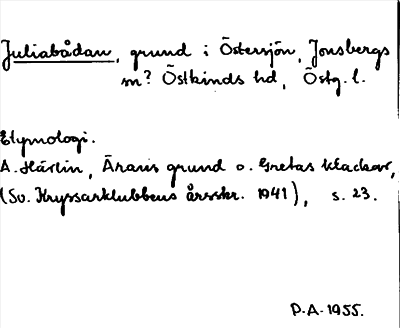 Juliabådan, grund i Östersjön, Jonsbergs
sn? Östkinds hd, Östg. l.
Etymologi.
A. Härlin, Ärans grund o. Gretas klackar,
(Sv. Kryssarklubbens årsskr. 1941), s. 23.
P.A. 1955.